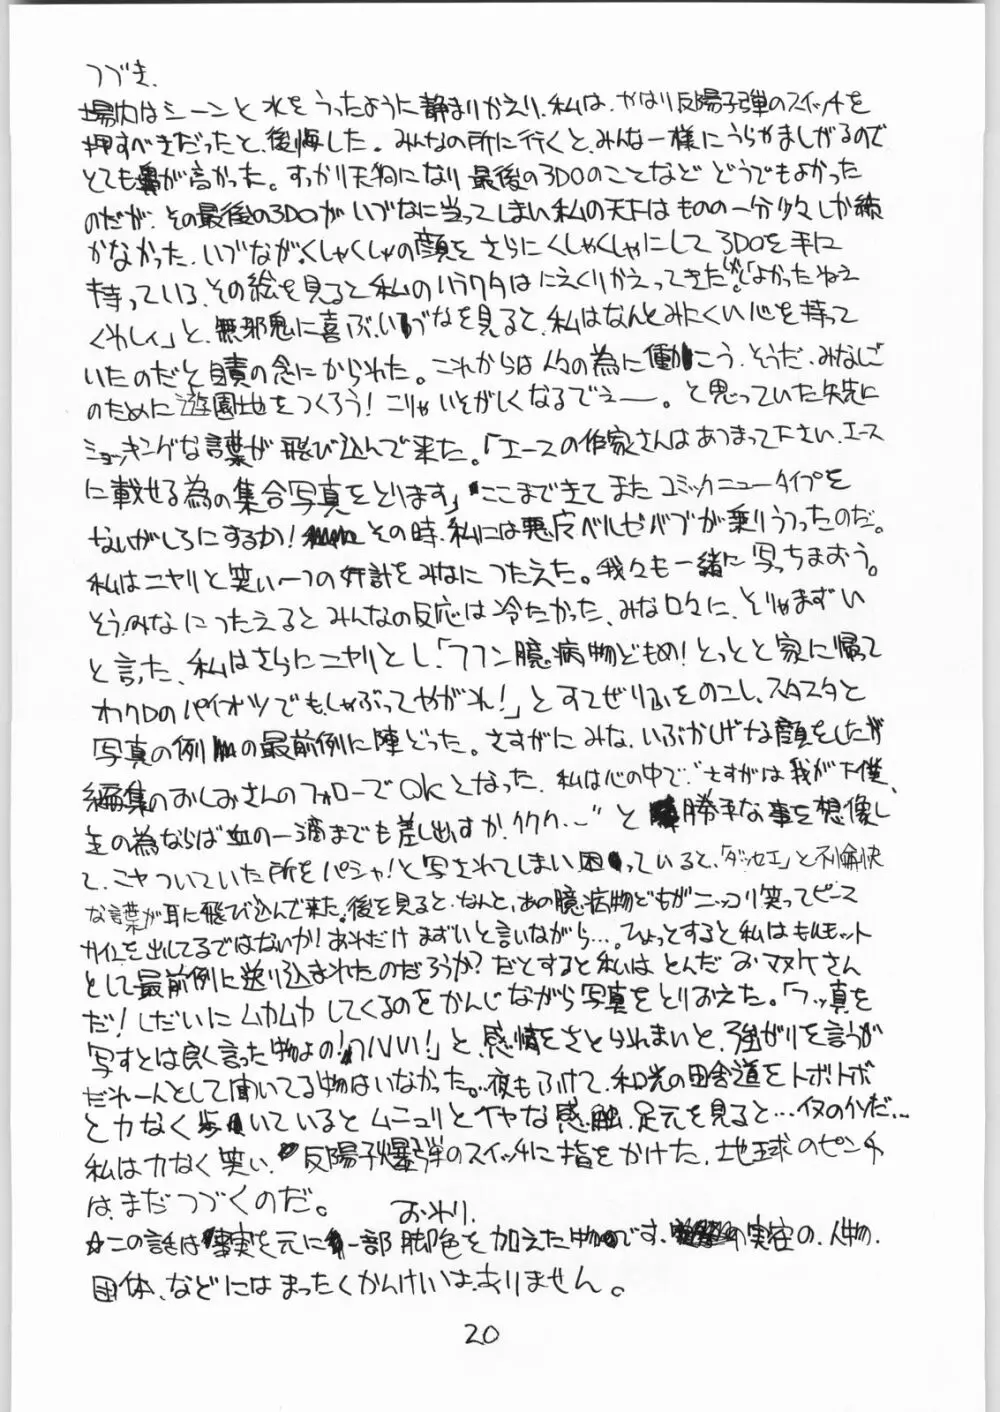 つづき.
場内はシーンと水をうったように静まりかえり、私は、やはり反陽子弾のスイッチを
押すべきだったと、後悔した。みんなの所に行くと、みんな一様にうらやましがるので
とても鼻が高かった。すっかり天狗になり最後の3DOのことなどどうでもよかった
のだが、その最後の3DOがいづなに当ってしまい私の天下はものの一分少々しか続
かなかった、いづながくしゃくしゃの顔をさらにくしゃくしゃにして3DOを手に
持っている、その絵を見ると私のハラワタはにえくりかえってきたが「よかったねえ
くわしィ」と、無邪鬼に喜ぶ、いづなを見ると、私はなんとみにくい心を持って
いたのだと自責の念にかられた。これからは人々の為に働こう、そうだ、みなしご
のために遊園地をつくろう!こりゃいそがしくなるでぇー。と思っていた矢先に
ショッキングな言葉が飛び込んで来た。「エースの作家さんはあつまって下さい、エース
に載せる為の集合写真をとります」ここまできてまたコミックニュータイプを
ないがしろにするか!その時、私には悪魔ベルゼバブが乗りうつったのだ。
私はニヤリと笑い一つの奸計をみなにつたえた。我々も一緒に写っちまおう。
そう、みなにつたえるとみんなの反応は冷たかった、みな口々に、そりゃまずい
と言った、私はさらにニヤリとし、「フフン臆病物どもめ!とっとと家に帰って
オフクロのパイオツでも、しゃぶってやがれ!」とすてぜりふをのこし、スタスタと
写真の例の最前例に陣どった。さすがにみな、いぶかしげな顔をしたが
編集のおしみさんのフォローでOKとなった、私は心の中で、"さすがは我が下僕、
主の為ならば血の一滴までも差し出すか、ククク…"と勝手な事を想像し
て、ニヤついていた所をパシャ!と写されてしまい困っていると、「ダッセエ」と不愉快
な言葉が耳に飛び込んで来た。後を見ると、なんと、あの臆病物どもがニッコリ笑ってピース
サインを出してるではないか!あれだけまずいと言いながら…。ひょっとすると私はモルモット
として最前例に送り込まれたのだろうか?だとすると私はとんだおマヌケさん
だ!しだいにムカムカしてくるのをかんじながら写真をとりおえた。「フッ真を
写すとは良く言った物よの!ハハハ!」と、感情をさとられまいと、強がりを言うが
だれ一人として聞いてる物はいなかった。夜もふけて、和光の田舎道をトボトボ
と力なく歩いているとムニュリとイヤな感触、足元を見ると…イヌのフンだ…
私は力なく笑い、反陽子爆弾のスイッチに指をかけた、地球のピンチ
は、まだつづくのだ。
おわり.
☆この話は事実を元に一部脚色を加えた物です、実在の、人物、
団体、などにはまったくかんけいは、ありません。
20